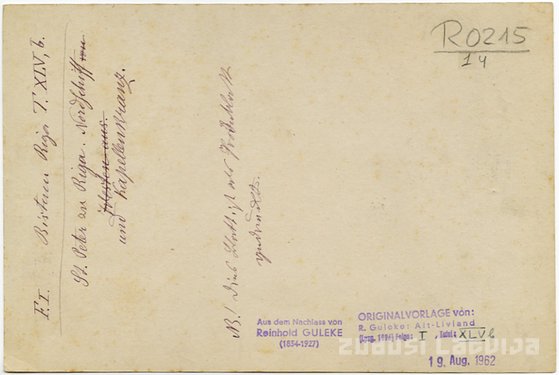 R0215
14
F. I. Bistum Riga T. XLV, b.
St. Peter zu Riga. Nordschiff von
und Kapellenkranz.
NB! Dies Blatt ist als
Aus dem Nachlass von
Reinhold GULEKE
(1834-1927)
ORIGINALVORLAGE von:
R. Guleke: Alt-Livland
Folge: I , Tafel: XLV b
19. Aug. 1962
zudusi Latvija